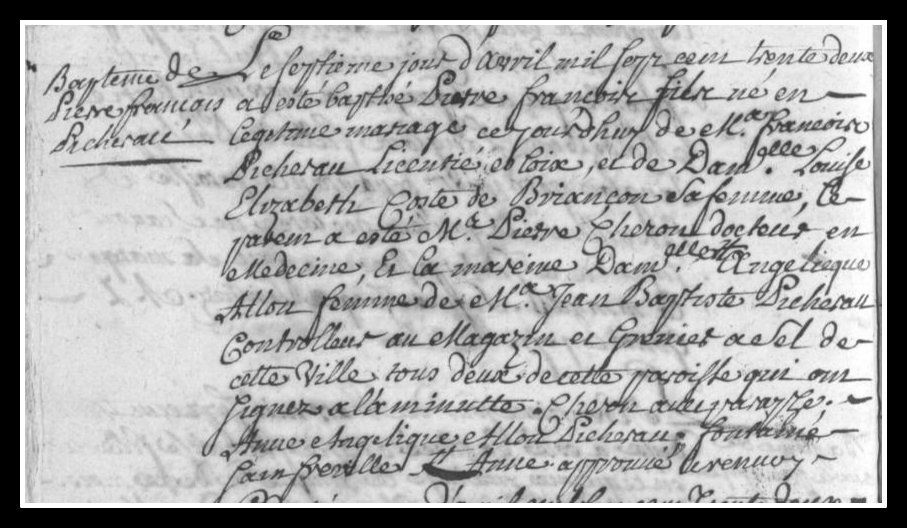 Bapteme de
Pierre françois
Picherau
Le septieme jour d'Avril mil sept cent trente deux
a esté baptisé Pierre françois fils né en
legitime mariage ce jourd'huy de Me. françois
Picherau Licentié es loix, et de Damelle. Louise
Elizabeth Coste de Briançon sa femme, le
parein a esté Me. Pierre Cheron docteur en
Medecine, Et la mareine Damelle. Angelicque
Allou femme de Me. Jean Baptiste Picherau
Controlleur au Magazin et Grenier a sel de
cette Ville tous deux de cette paroisse qui ont
signez a la minutte. Cheron avec paraffe.
Anne Angelique Allou Picherau, fontaine
Anne approuvé le renvoy